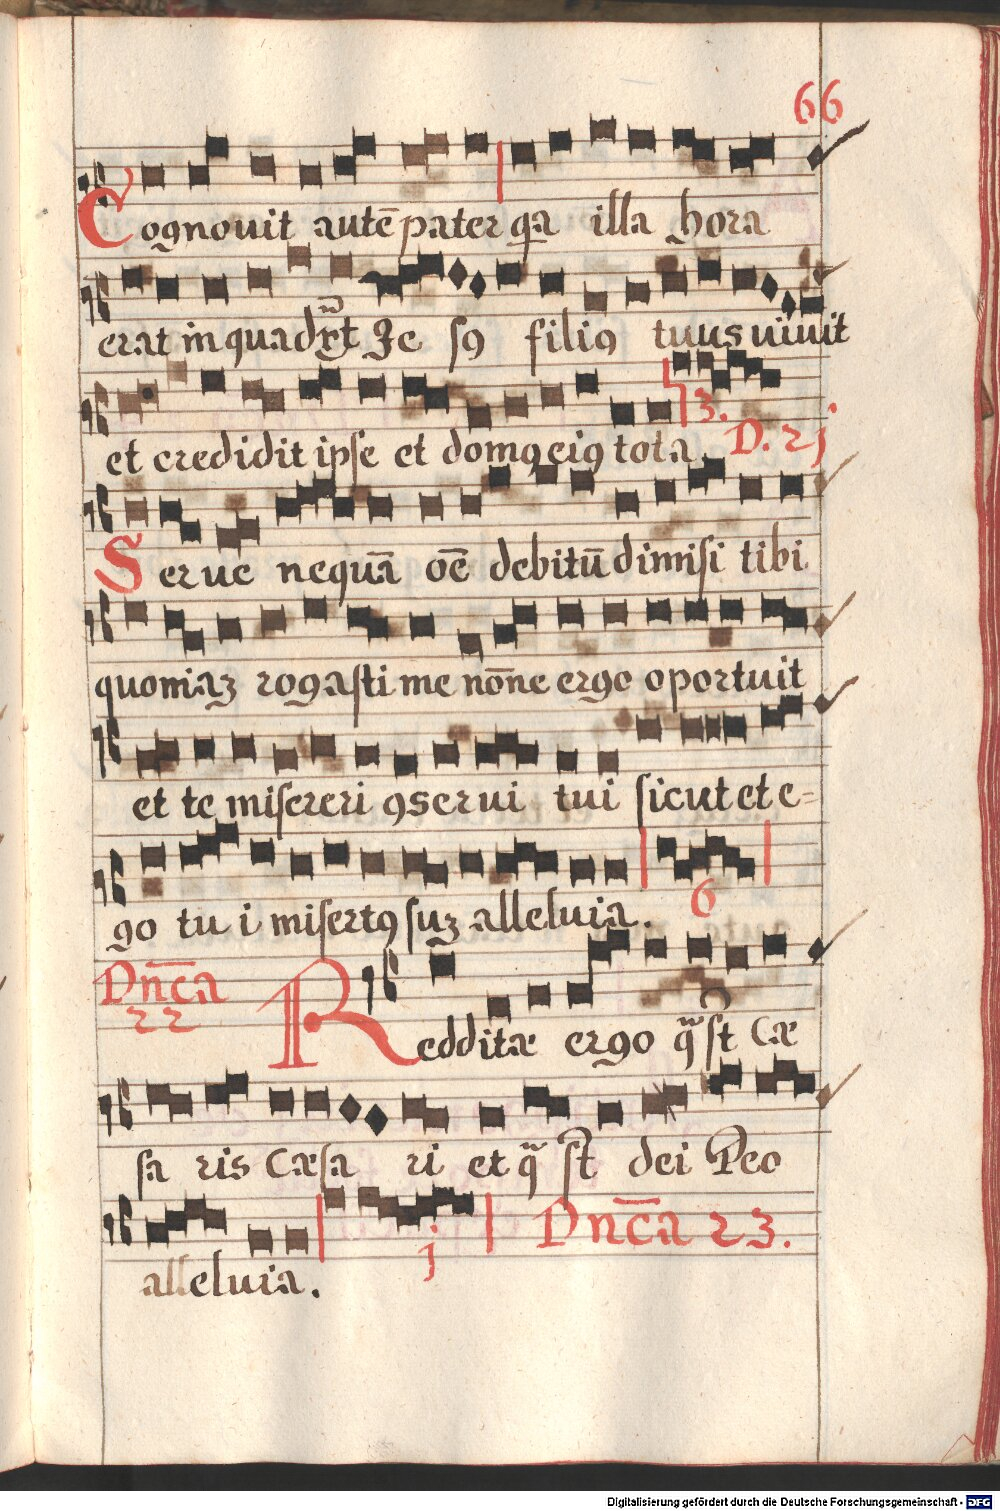 66
Cognovit autē pater qa illa hora
erat in qua dixt Jesꝯ filiꝯ tuus uiuit
et credidit ipse et domꝯ eiꝯ tota. 3. D. 21
Serue nequā oē debitū dimisi tibi
quoniaꝫ rogasti me nōne ergo oportuit
et te misereri ꝯserui tui sicut et e=
go tui misertꝯ suꝫ alleluia. 6
Dnīca 22 Redditæ ergo q̃ st Cæ
saris Cæsari et q̃ st dei Deo
alleluia. j Dnīca 23.
Digitalisierung gefördert durch die Deutsche Forschungsgemeinschaft - DFG